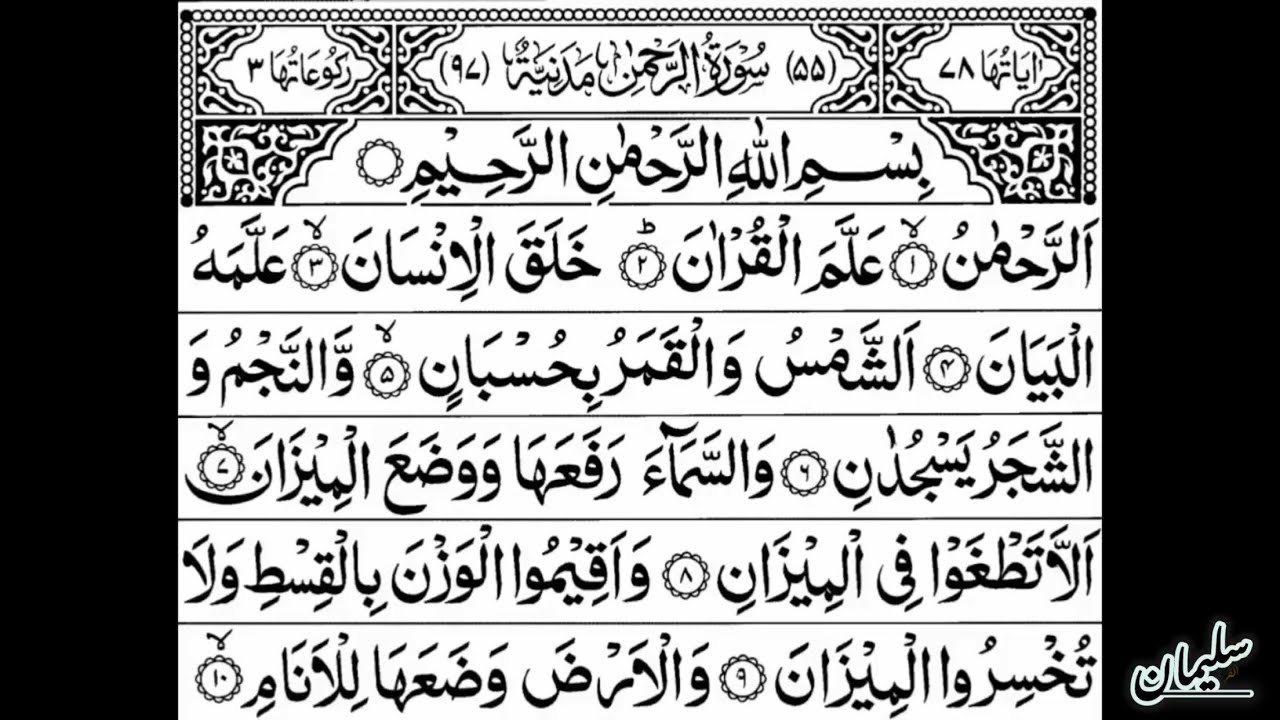 اٰيَاتُهَا ٧٨ (٥٥) سُوْرَةُ الرَّحْمٰنِ مَدَنِيَّةٌ (٩٧) رُكُوْعَاتُهَا ٣
بِسْمِ اللّٰهِ الرَّحْمٰنِ الرَّحِيْمِ
اَلرَّحْمٰنُ ۙ﴿١﴾ عَلَّمَ الْقُرْاٰنَ ؕ﴿٢﴾ خَلَقَ الْاِنْسَانَ ۙ﴿٣﴾ عَلَّمَهُ
الْبَيَانَ ﴿۴﴾ اَلشَّمْسُ وَالْقَمَرُ بِحُسْبَانٍ ۙ﴿۵﴾ وَّالنَّجْمُ وَ
الشَّجَرُ يَسْجُدٰنِ ﴿۶﴾ وَالسَّمَآءَ رَفَعَهَا وَوَضَعَ الْمِيْزَانَ ۙ﴿٧﴾
اَلَّا تَطْغَوْا فِى الْمِيْزَانِ ﴿٨﴾ وَاَقِيْمُوا الْوَزْنَ بِالْقِسْطِ وَلَا
تُخْسِرُوا الْمِيْزَانَ ﴿٩﴾ وَالْاَرْضَ وَضَعَهَا لِلْاَنَامِ ۙ﴿١٠﴾
سليمان